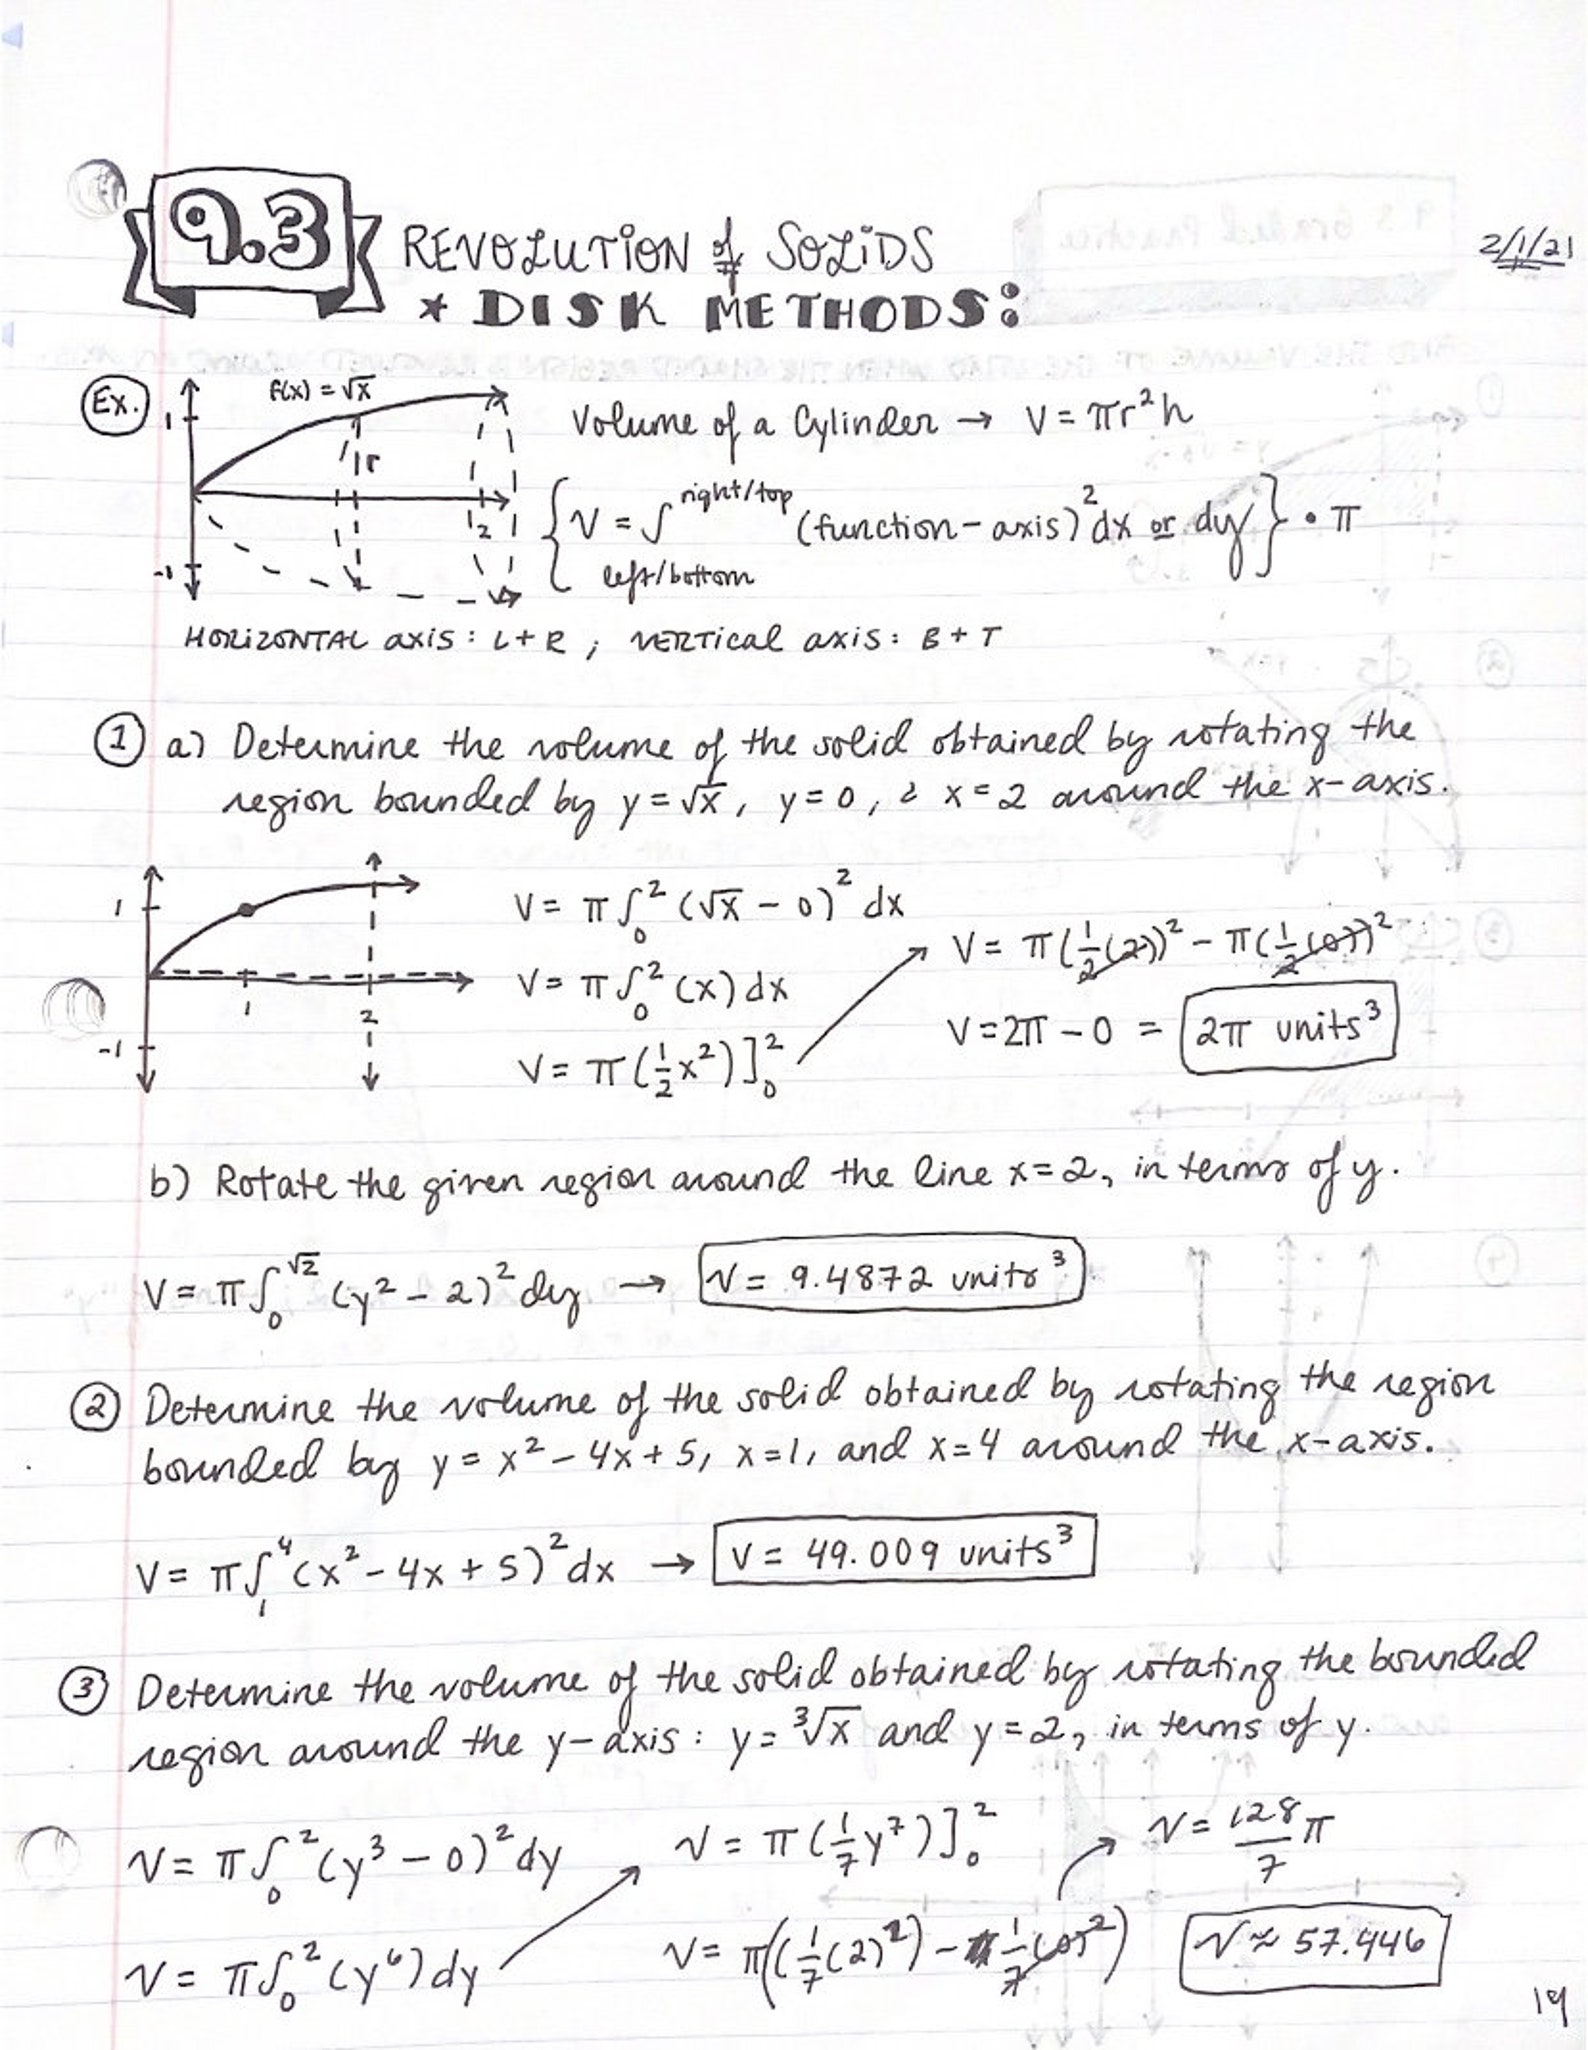 9.3 REVOLUTION of SOLIDS 2/1/21
* DISK METHODS:
Ex. f(x) = √x Volume of a Cylinder → V = πr²h
1 r 1 2 -1
{V = ∫ right/top left/bottom (function - axis)² dx or dy} • π
HORIZONTAL axis: L + R ; VERTICAL axis: B + T
① a) Determine the volume of the solid obtained by rotating the
region bounded by y = √x, y = 0, & x = 2 around the x-axis.
1 1 2 -1
V = π∫₀² (√x - 0)² dx
V = π∫₀² (x) dx
V = π(½x²)]₀²
V = π(½(2))² - π(½(0))²
V = 2π - 0 = 2π units³
b) Rotate the given region around the line x = 2, in terms of y.
V = π∫₀^√2 (y² - 2)² dy → V = 9.4872 units³
② Determine the volume of the solid obtained by rotating the region
bounded by y = x² - 4x + 5, x = 1, and x = 4 around the x-axis.
V = π∫₁⁴ (x² - 4x + 5)² dx → V = 49.009 units³
③ Determine the volume of the solid obtained by rotating the bounded
region around the y-axis: y = ³√x and y = 2, in terms of y.
V = π∫₀² (y³ - 0)² dy
V = π∫₀² (y⁶) dy
V = π(1/7 y⁷)]₀²
V = π((1/7 (2)²) - 1/7 (0)²)
V = 128/7 π
V ≈ 57.446
19